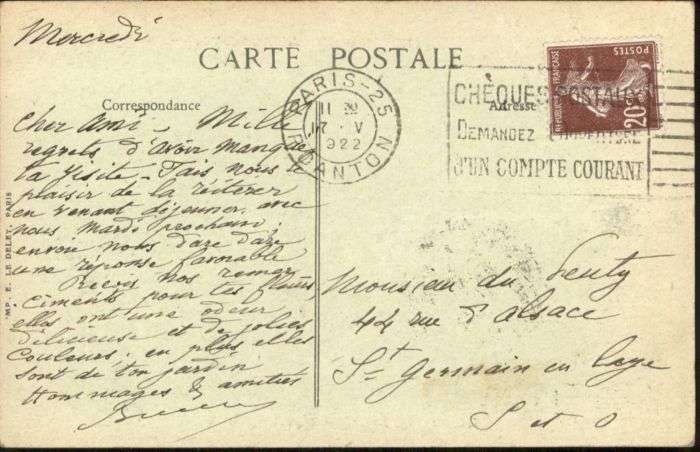 Mercredi
CARTE POSTALE
Correspondance
Adresse
PARIS-25
11
17 · V
922
R. DANTON
CHÈQUES POSTAUX
DEMANDEZ
D'UN COMPTE COURANT
POSTES
REPUBLIQUE FRANÇAISE
20c
Cher Ami - Mille
regrets d'avoir manqué
ta visite - Fais nous le
plaisir de la réiterer
en venant déjeuner avec
nous Mardi prochain;
envoie nous dare dare
une réponse favorable
Reçois nos remer
ciments pour tes fleurs,
elles ont une odeur
délicieuse et de jolies
couleurs, en plus elles
sont de ton jardin
Hommages & amitiés
Monsieur du
44 rue d'alsace
St Germain en Laye
S et O
IMP. E. LE DELEY, PARIS